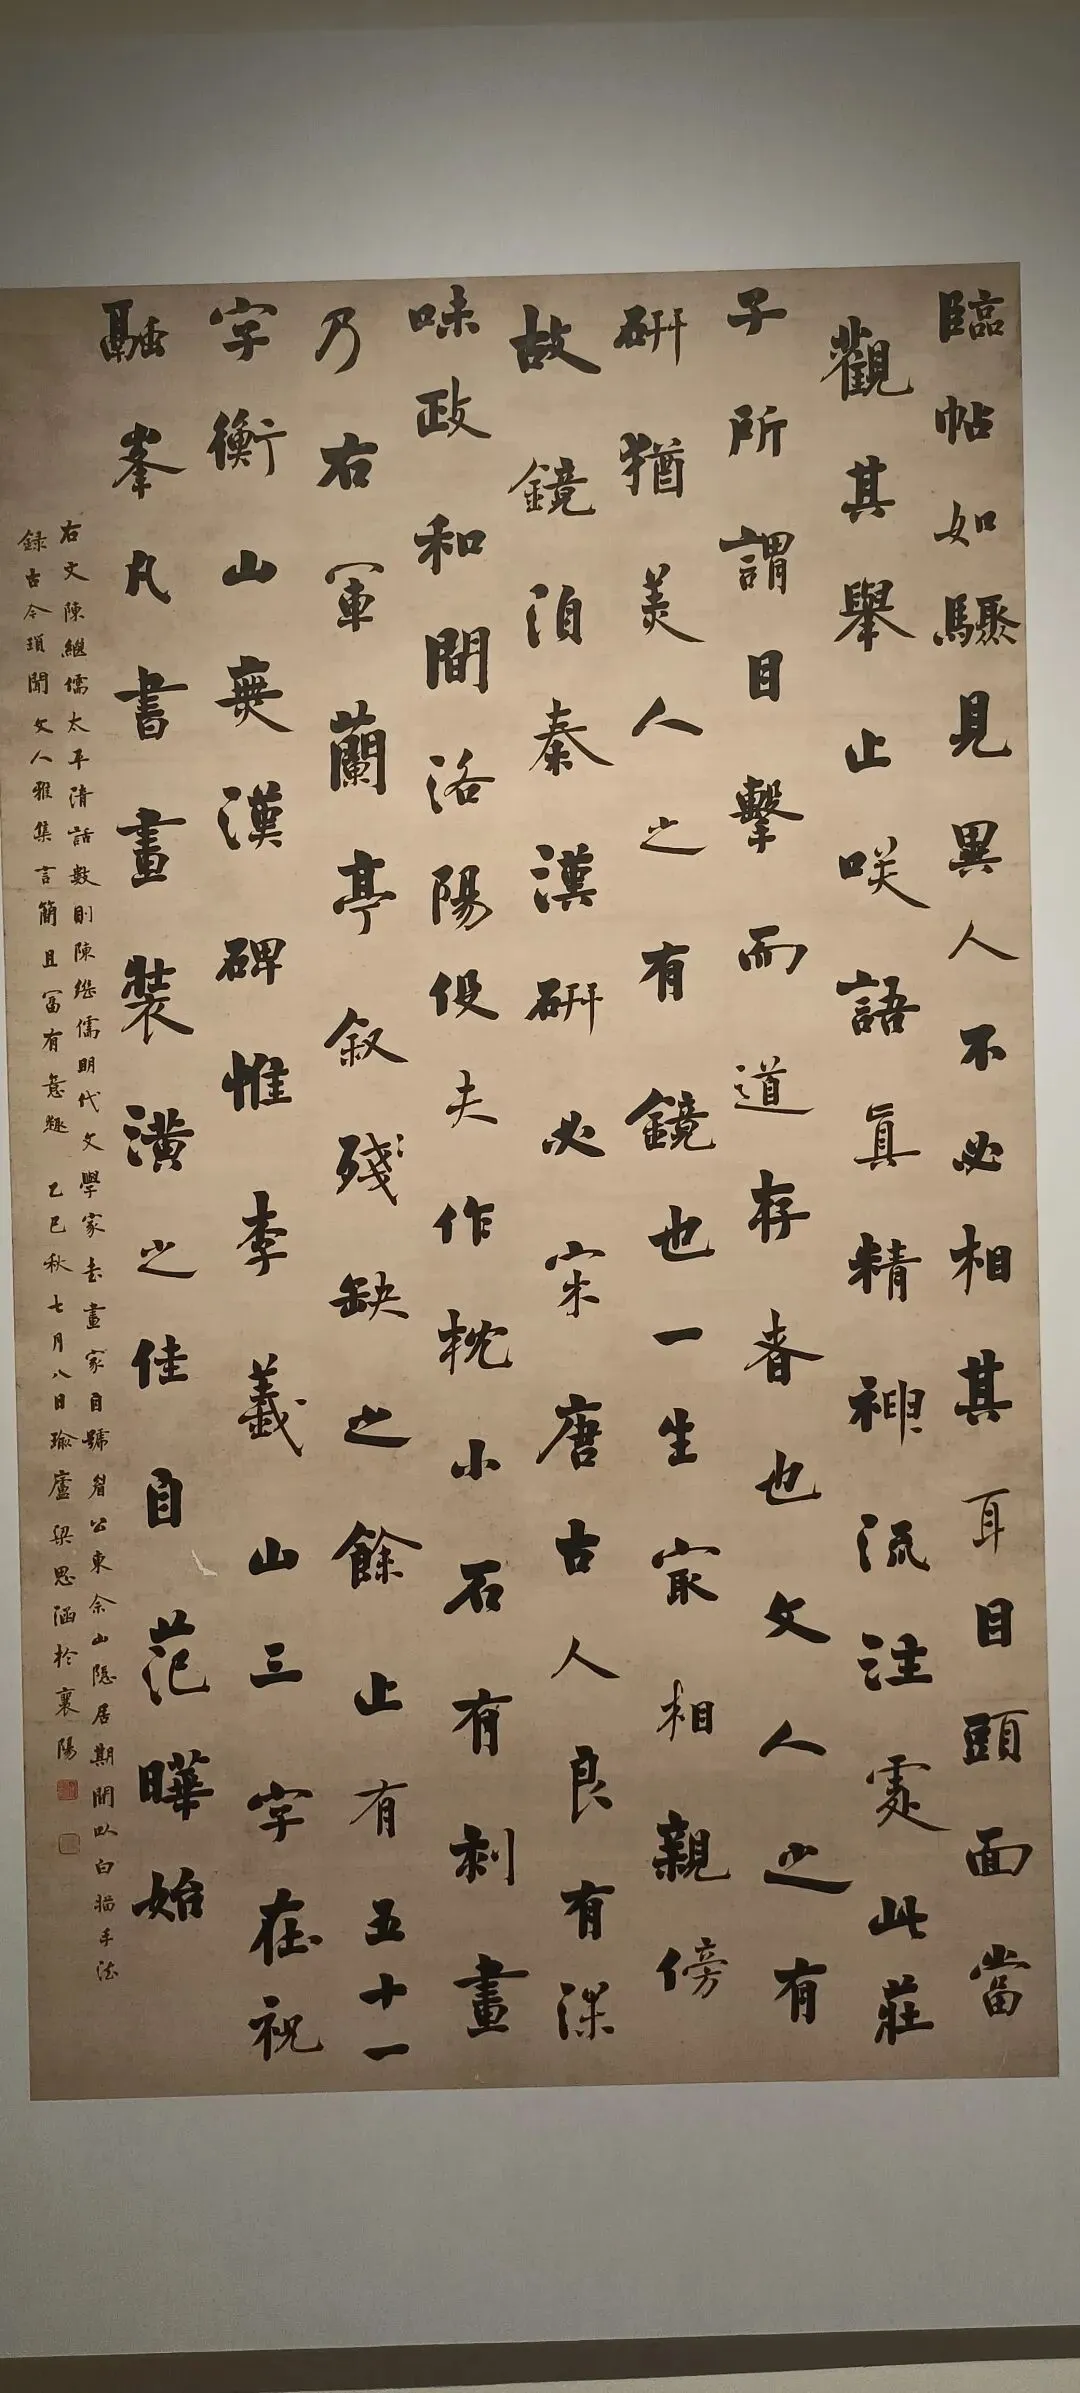 臨帖如驟見異人不必相其耳目頭面當
觀其舉止咲語真精神流注處此莊
子所謂目擊而道存者也文人之有
研猶美人之有鏡也一生冣相親傍
故鏡洎秦漢研必宋唐古人良有深
味政和間洛陽役夫作枕小石有刹畫
乃右軍蘭亭叙殘缺之餘止有五十一
字衡山無漢碑惟李義山三字在祝
融峯凡書畫裝潢之佳自范曄始
右文陳繼儒太平清話數則陳繼儒明代文學家書畫家自號眉公東佘山隱居期間以白描手法
録古今瑣聞文人雅集言簡且富有意趣 乙巳秋七月八日瑜廬梁思涵於襄陽